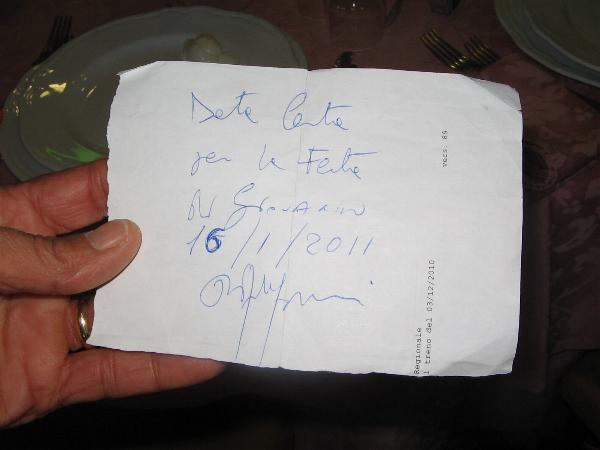 Data Certa
per la Festa
di Giovanni
16/1/2011
vers. 89
Regionale
l treno del 03/12/2010